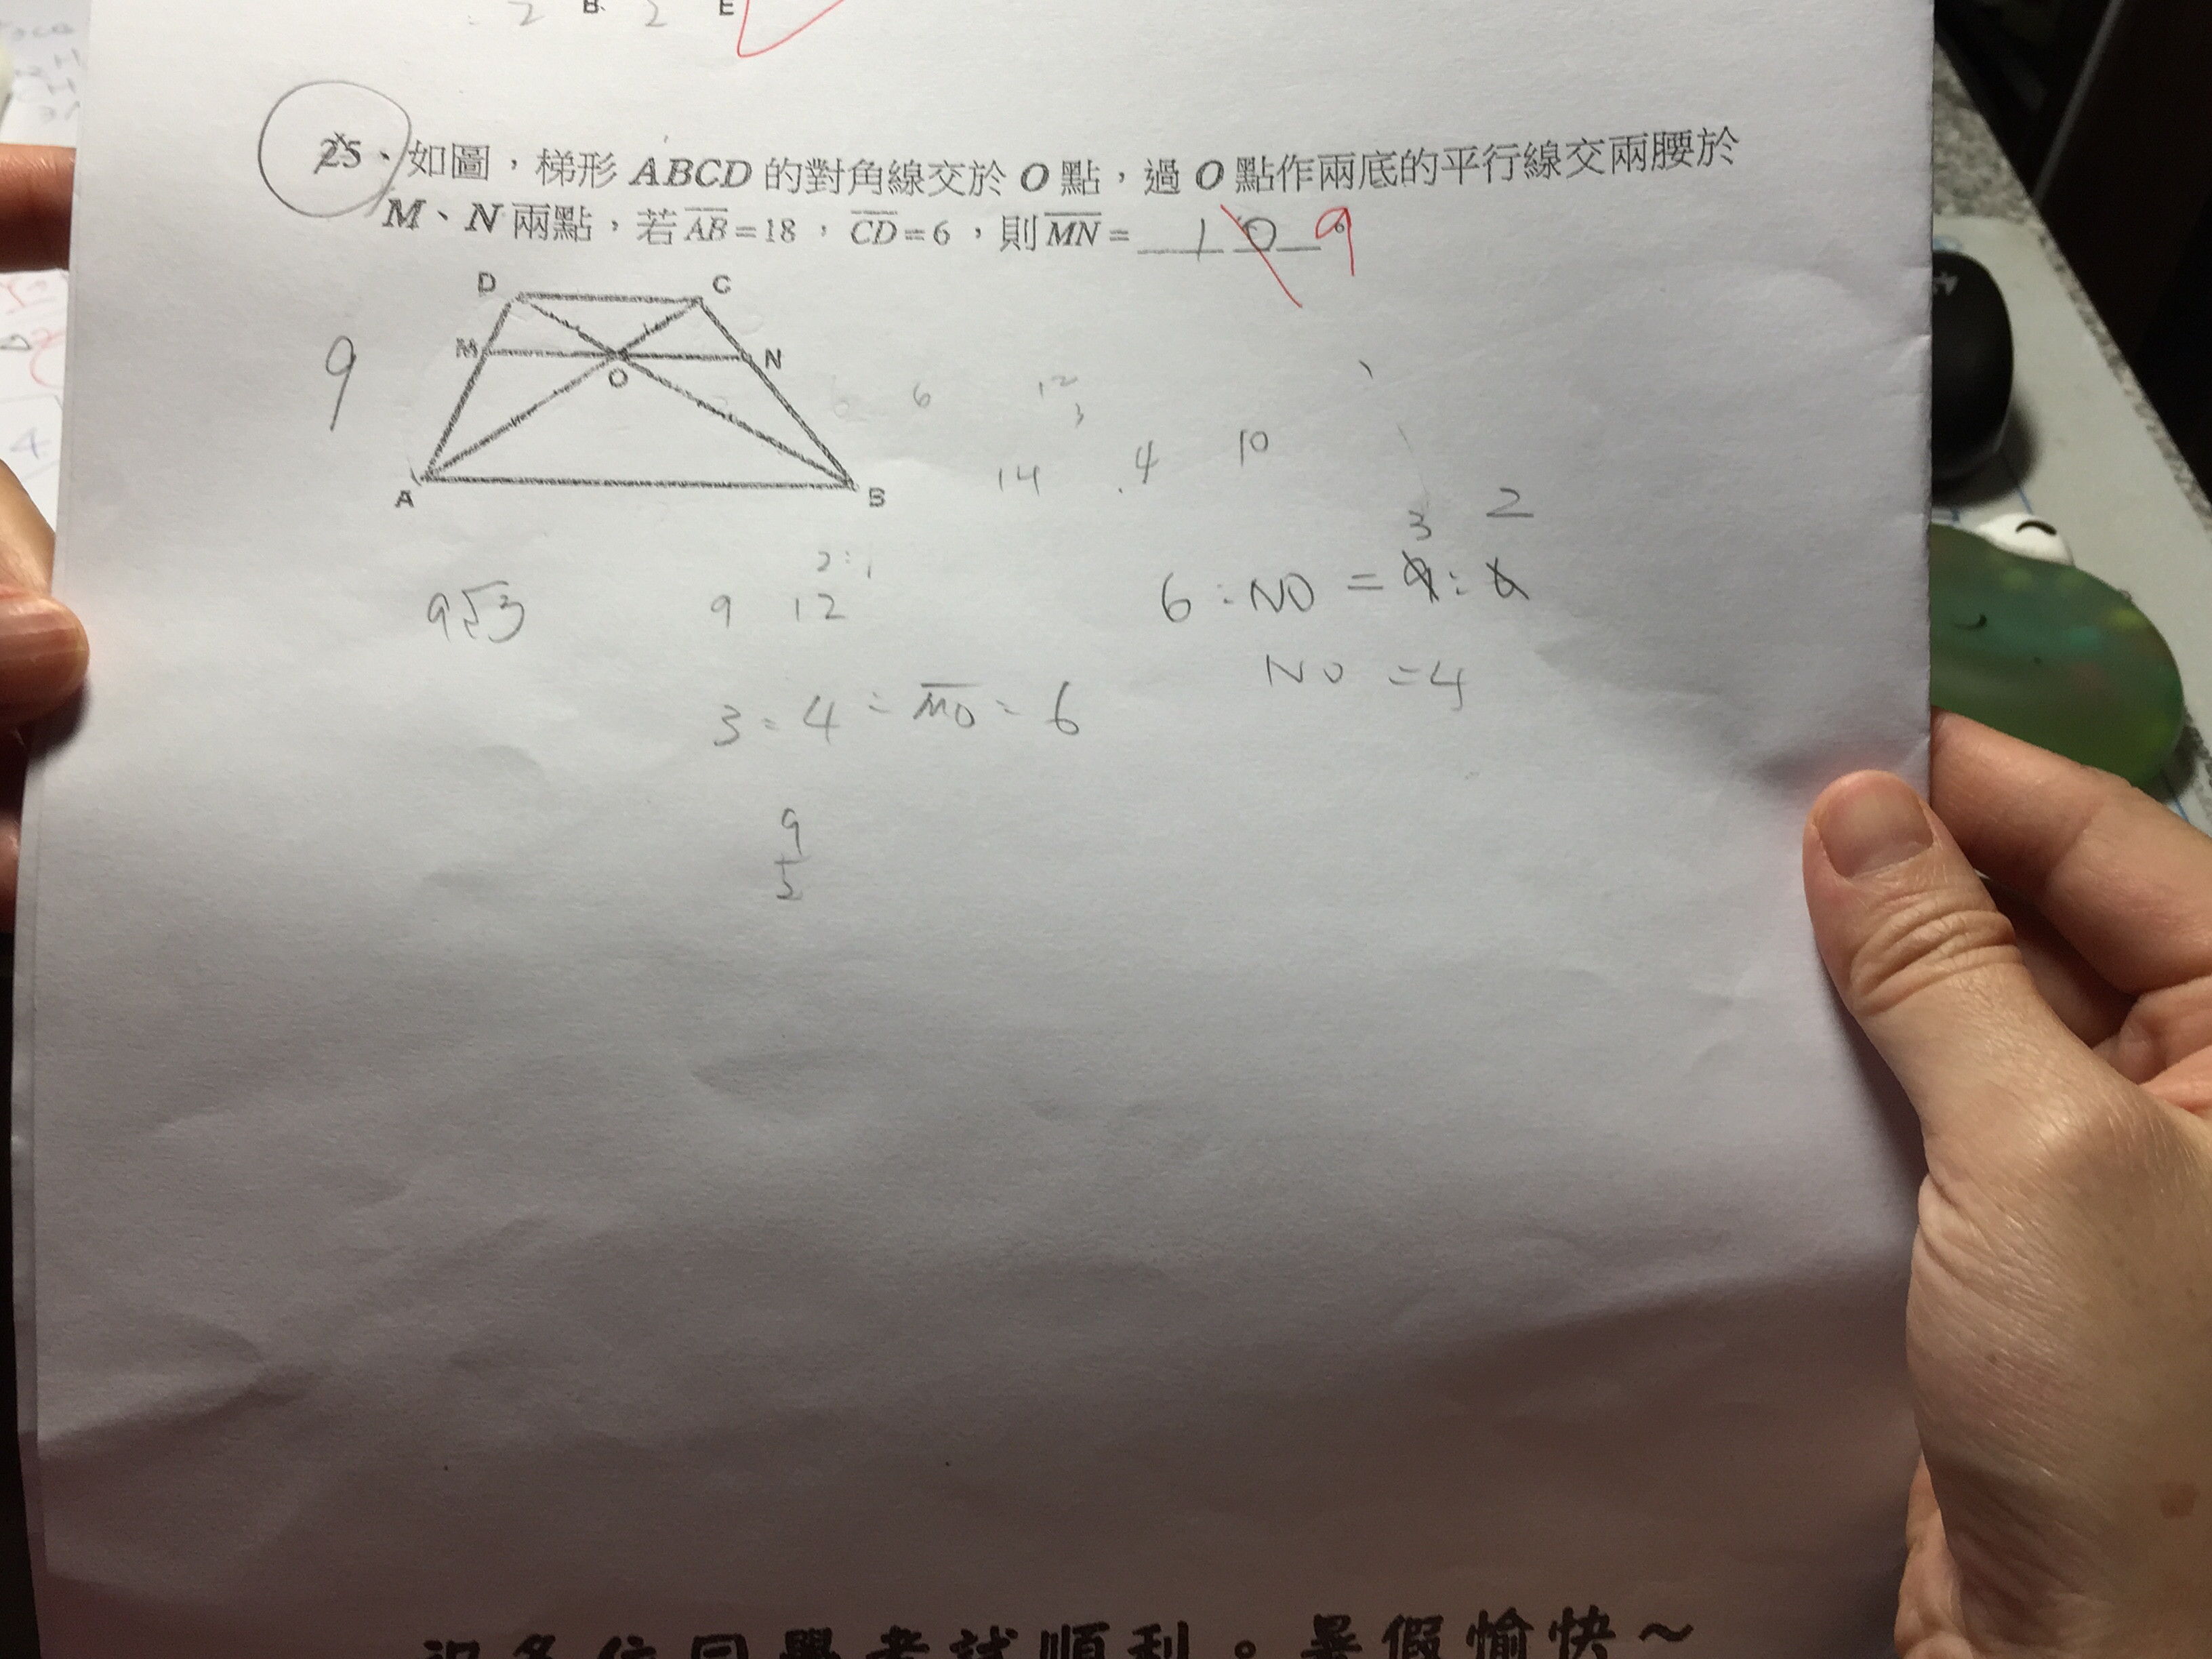 2 B 2 E
25、如圖，梯形 ABCD 的對角線交於 O 點，過 O 點作兩底的平行線交兩腰於
M、N 兩點，若 AB=18，CD=6，則 MN= 10 9
D C
M N
O
A B
9
6 12
3
14 4 10
2:1
9√3 9 12
3 2
6:NO = 9:6
NO =4
3:4=MO:6
9
2
祝各位同學考試順利。暑假愉快～
4